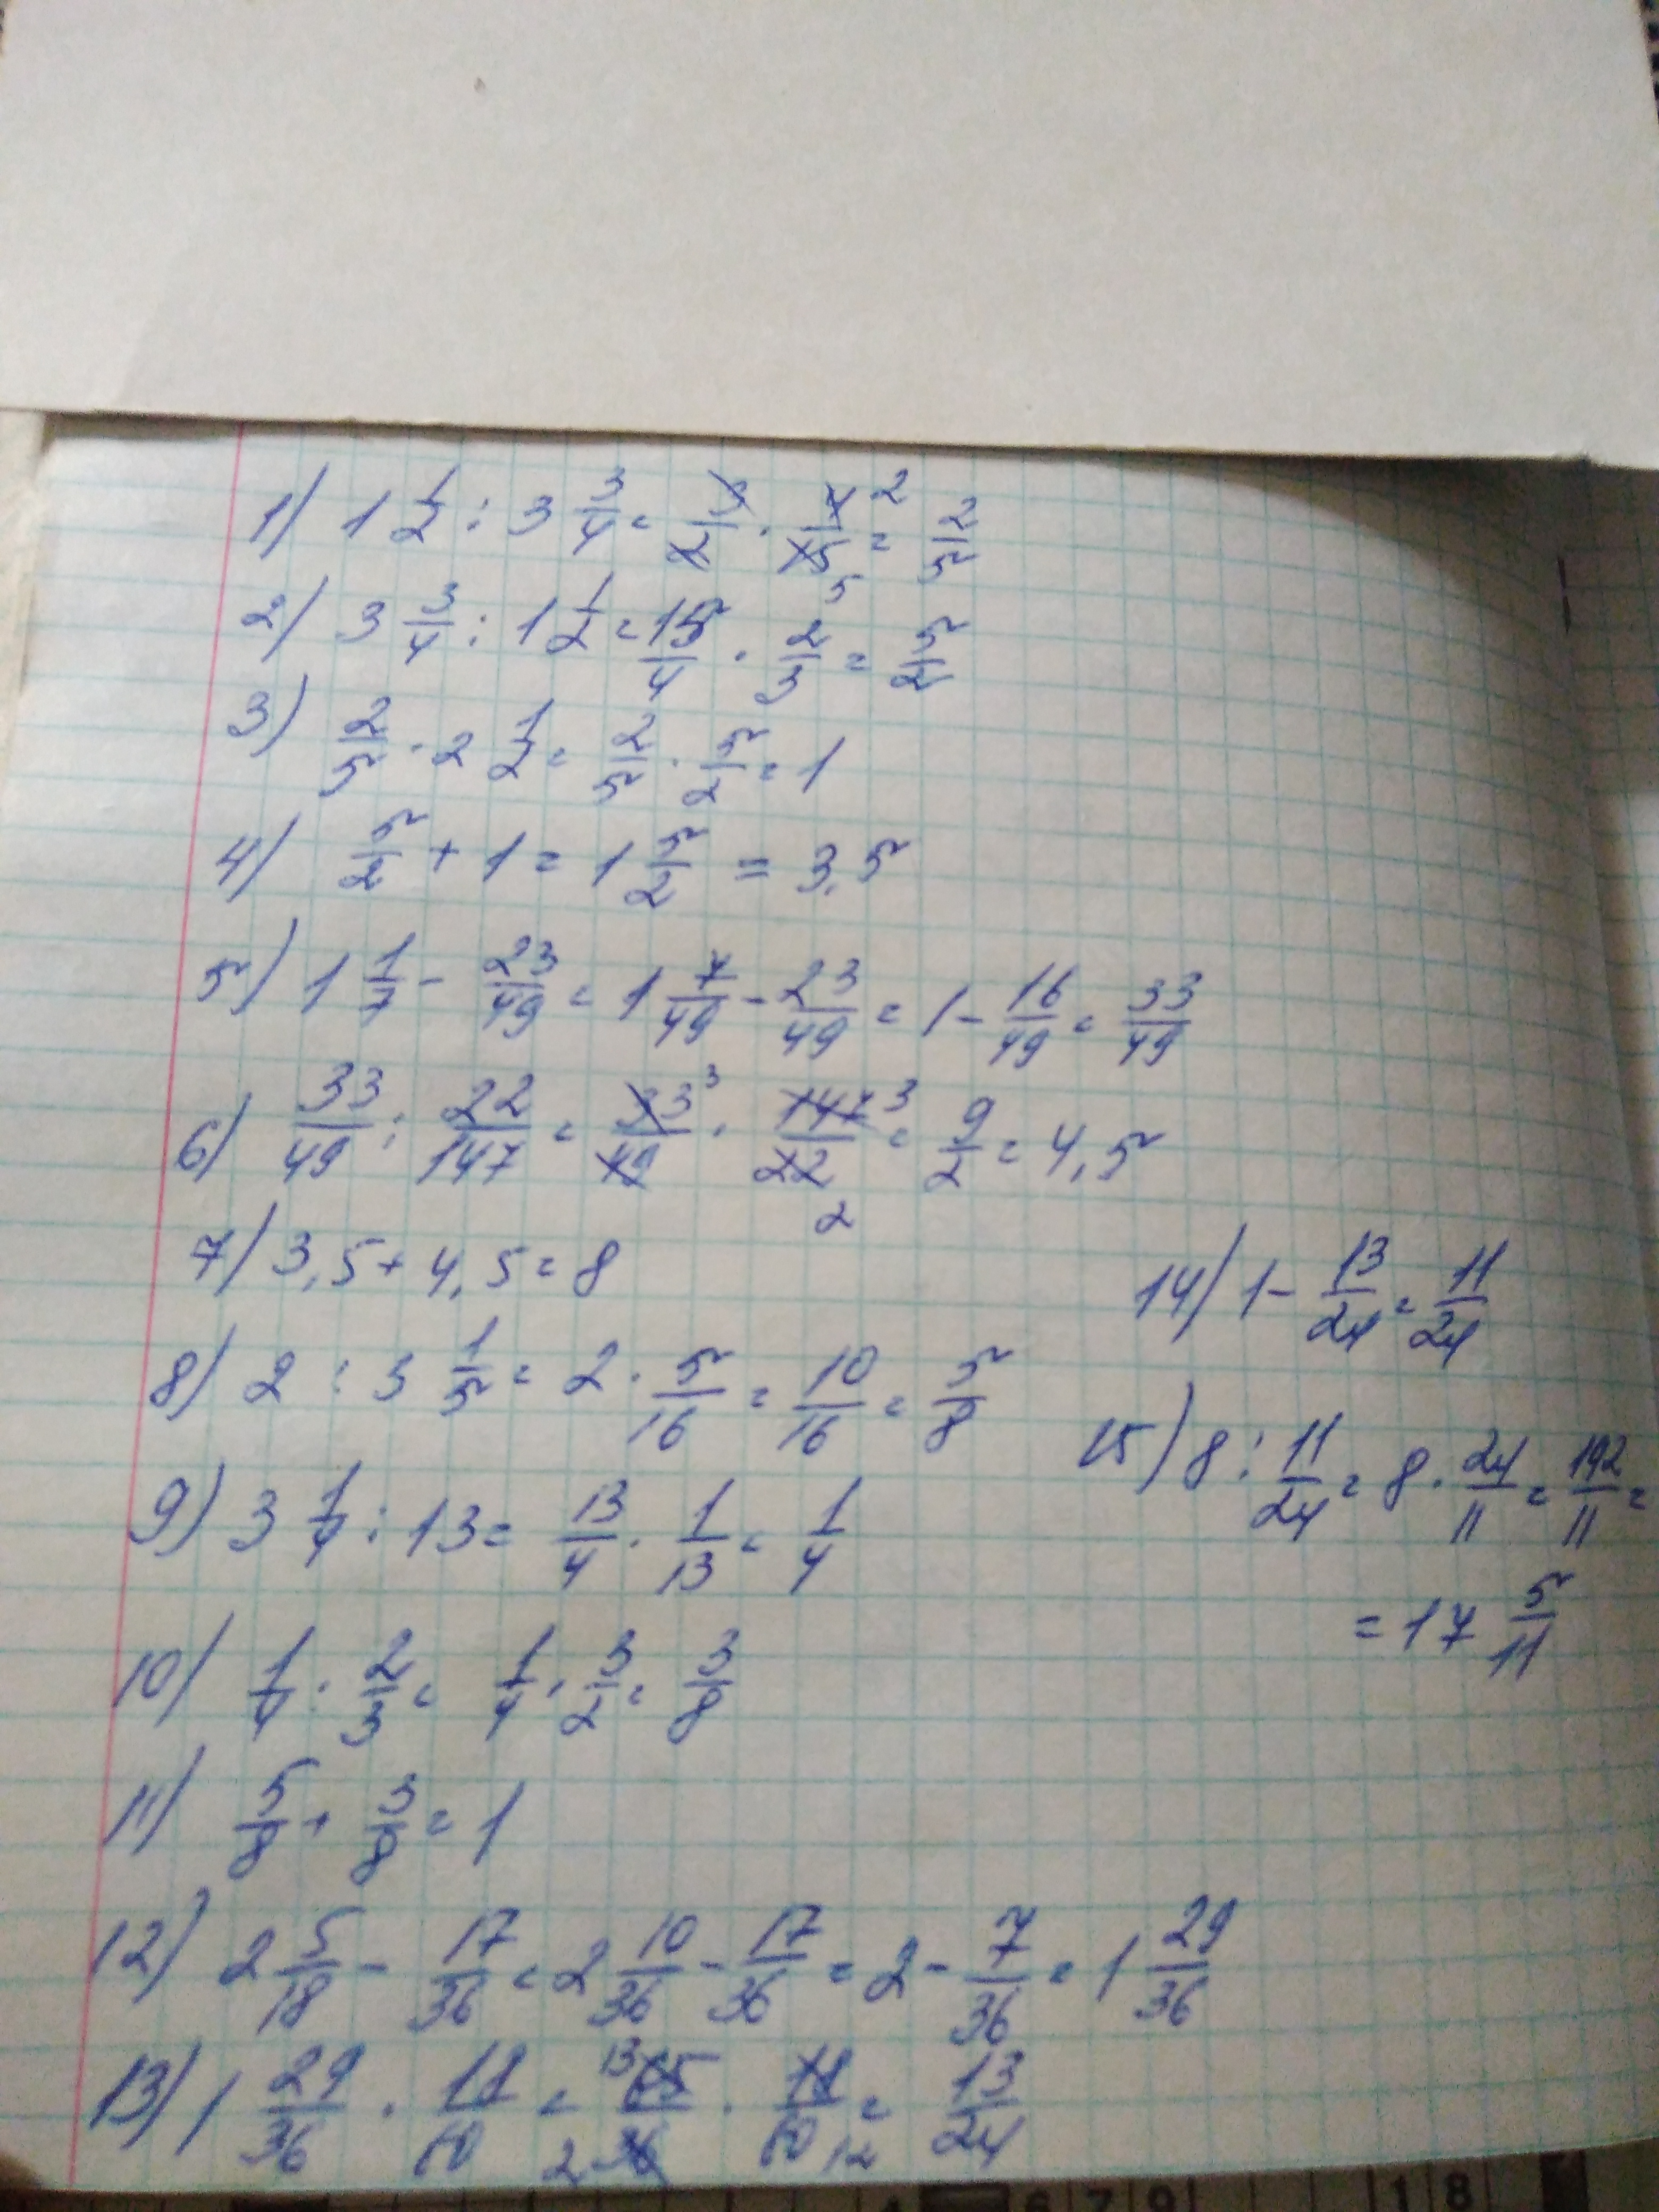 1) 1 1/2 : 3 3/4 = 3/2 · 4/15 = 2/5
2) 3 3/4 : 1 1/2 = 15/4 · 2/3 = 5/2
3) 2/5 · 2 1/2 = 2/5 · 5/2 = 1
4) 5/2 + 1 = 1 5/2 = 3,5
5) 1 1/7 - 23/49 = 1 7/49 - 23/49 = 1 - 16/49 = 33/49
6) 33/49 : 22/147 = 33/49 · 147/22 = 9/2 = 4,5
7) 3,5 + 4,5 = 8
8) 2 : 3 1/5 = 2 · 5/16 = 10/16 = 5/8
9) 3 1/4 : 13 = 13/4 · 1/13 = 1/4
10) 1/4 : 2/3 = 1/4 · 3/2 = 3/8
11) 5/8 + 3/8 = 1
12) 2 5/18 - 17/36 = 2 10/36 - 17/36 = 2 - 7/36 = 1 29/36
13) 1 29/36 · 18/60 = 65/36 · 18/60 = 13/24
14) 1 - 13/24 = 11/24
15) 8 : 11/24 = 8 · 24/11 = 192/11 =
= 17 5/11
6 7 9 18